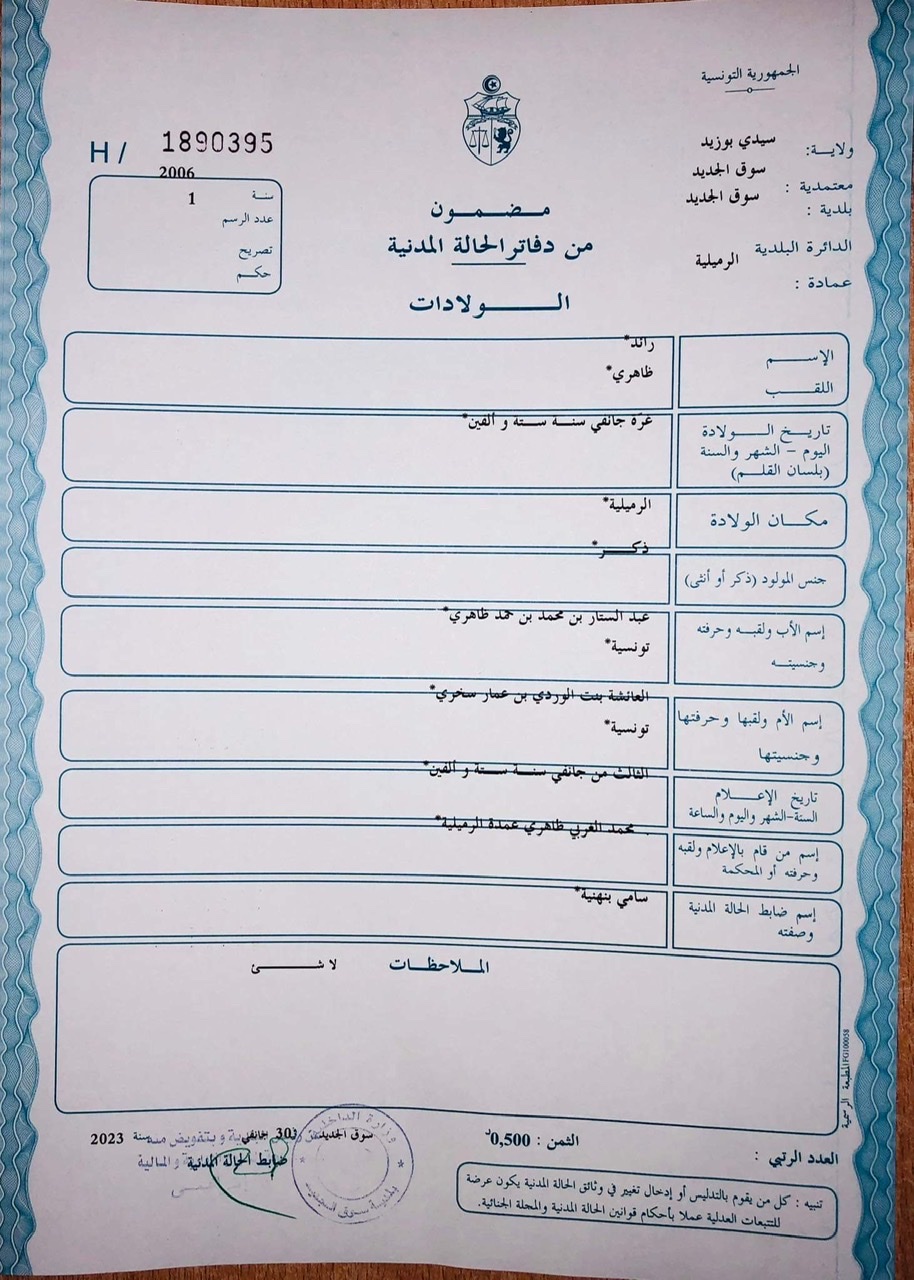 الجمهورية التونسية
ولاية: سيدي بوزيد
معتمدية : سوق الجديد
بلدية : سوق الجديد
الدائرة البلدية
عمادة : الرميلية
H / 1890395
2006
سنة
1
عدد الرسم
تصريح
حكم
مضمون
من دفاتر الحالة المدنية
الولادات
الإسم رائد*
اللقب ظاهري*
تاريخ الولادة غرّة جانفي سنة ستة و ألفين*
اليوم – الشهر والسنة
(بلسان القلم)
مكان الولادة الرميلية*
جنس المولود (ذكر أو أنثى) ذكر*
إسم الأب ولقبه وحرفته عبد الستار بن محمد بن حمد ظاهري*
وجنسيته تونسية*
إسم الأم ولقبها وحرفتها العائشة بنت الوردي بن عمار سخري*
وجنسيتها تونسية*
تاريخ الإعلام الثالث من جانفي سنة ستة و ألفين*
السنة-الشهر واليوم والساعة
إسم من قام بالإعلام ولقبه محمد العربي ظاهري عمدة الرميلية*
وحرفته أو المحكمة
إسم ضابط الحالة المدنية سامي بنهنية*
وصفته
الملاحظات لا شئ
المطبعة الرسمية FG100058
سوق الجديد 30 جانفي سنة 2023
ضابط الحالة المدنية
وزارة الداخلية
بلدية سوق الجديد
الثمن : 0,500د
العدد الرتبي :
تنبيه : كل من يقوم بالتدليس أو إدخال تغيير في وثائق الحالة المدنية يكون عرضة
للتتبعات العدلية عملا بأحكام قوانين الحالة المدنية والمجلة الجنائية.